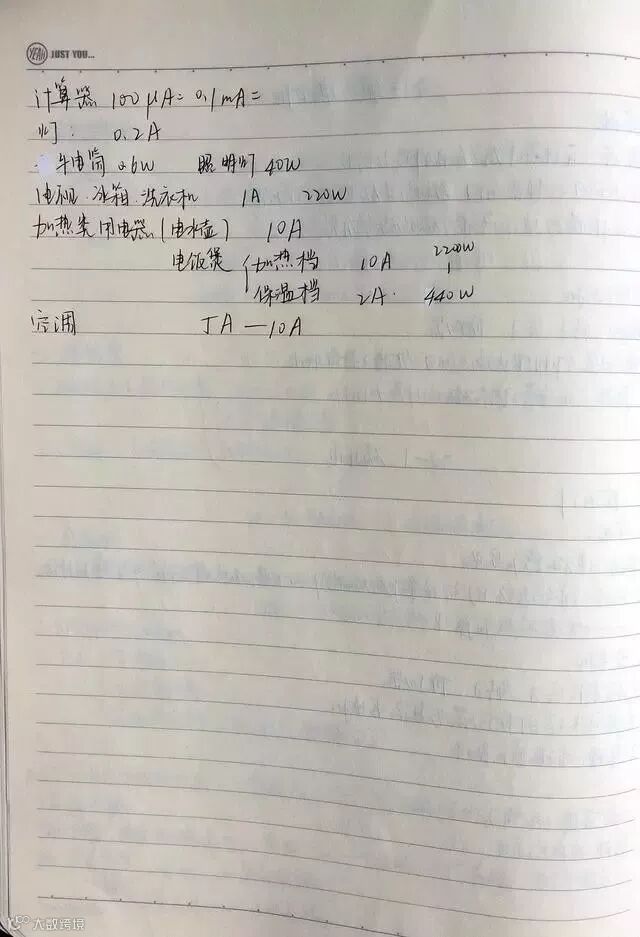 YEAH JUST YOU...
计算器 100μA= 0.1mA=
灯: 0.2A
手电筒 0.6W 照明灯 40W
电视.冰箱.洗衣机 1A 220W
加热类用电器(电水壶) 10A
电饭煲 加热档 10A 2200W
保温档 2A. 440W
空调 5A—10A
大数跨境